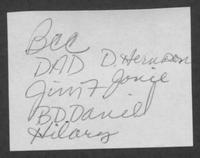 Bee
DAD D. Herndon
Jim & Janie
B.D. Daniel
Hilary